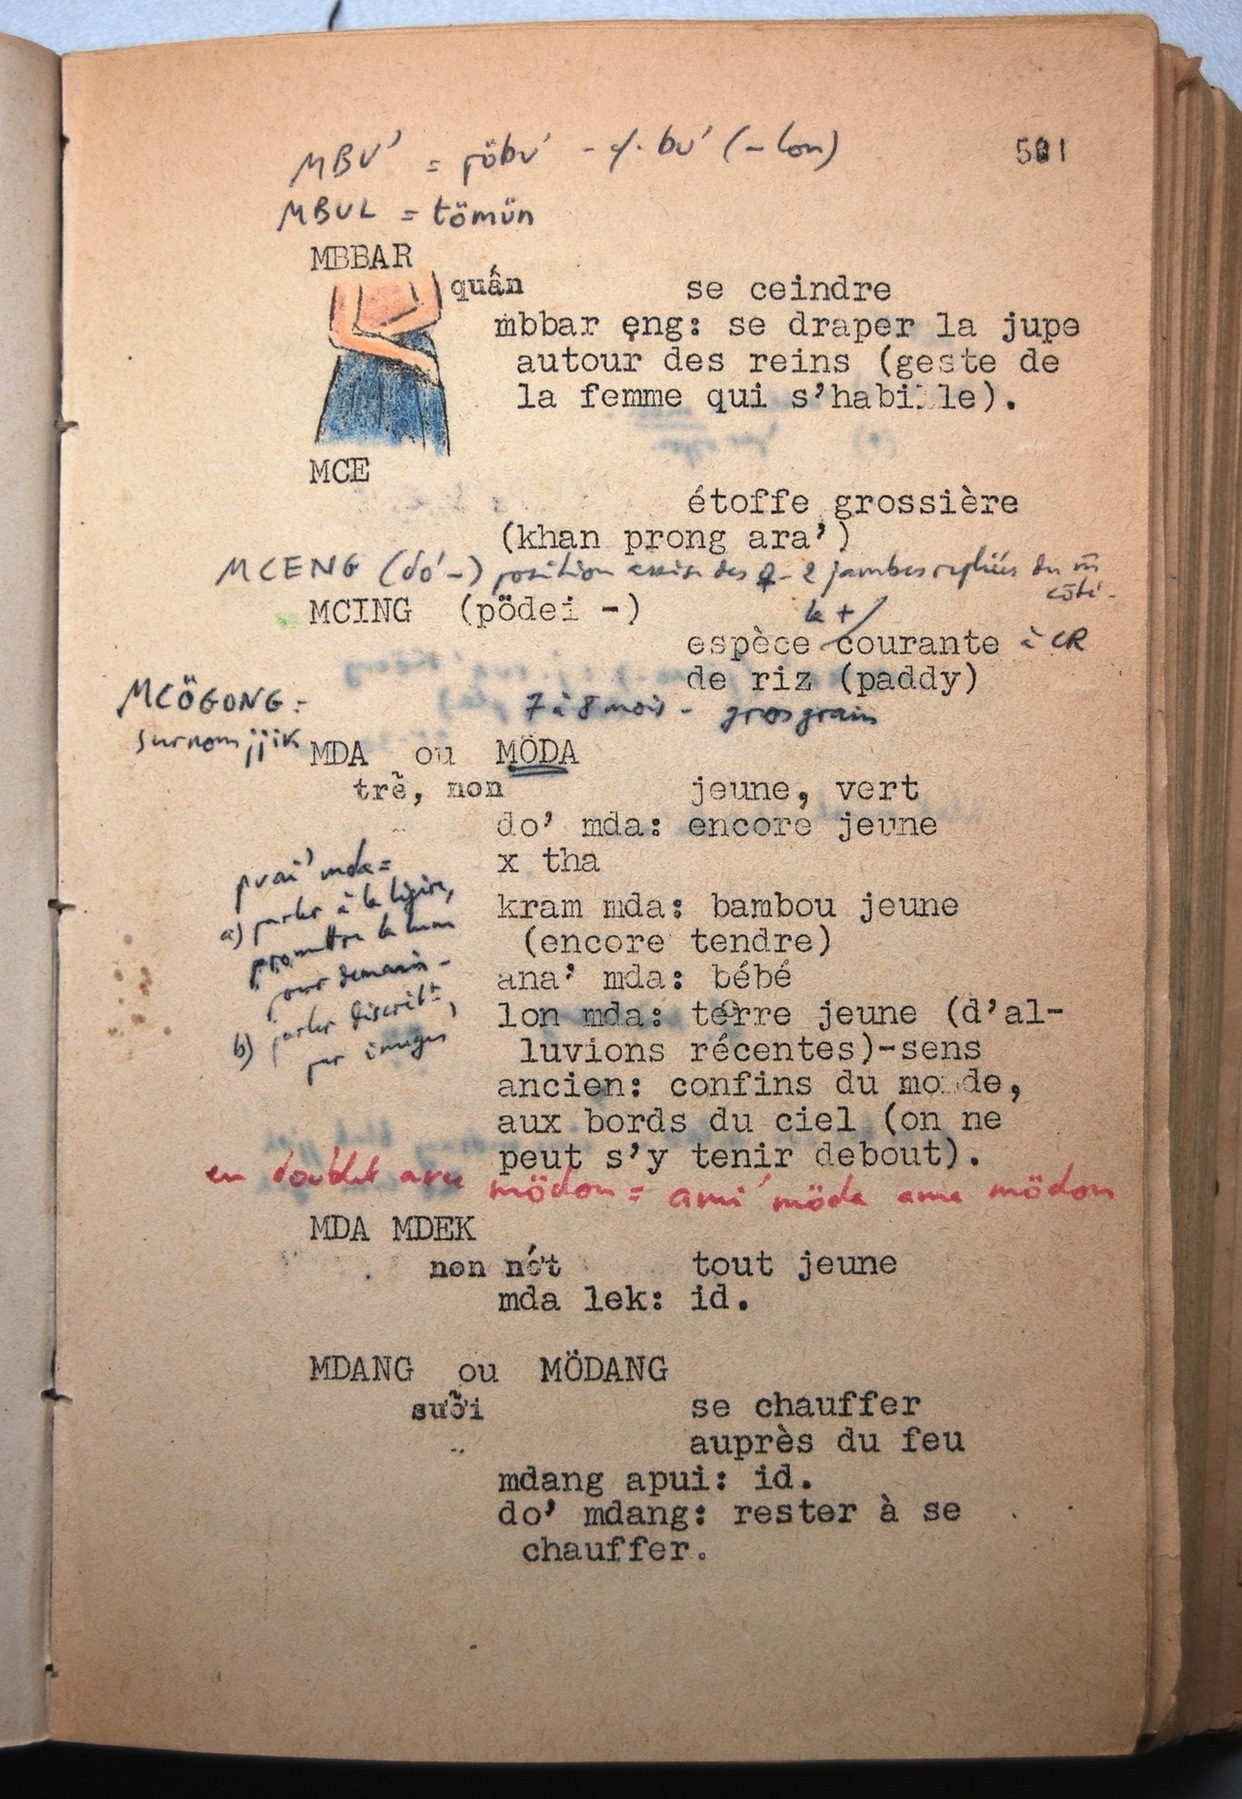 MBU' = pöbu' - cf. bu' (- lon)
501
MBUL = tömün
MBBAR
quấn se ceindre
mbbar ęng: se draper la jupe
autour des reins (geste de
la femme qui s'habille).
MCE
étoffe grossière
(khan prong ara')
MCENG (do' -) position assise des ♀ - 2 jambes repliées du m̄
côté -
MCING (pödei -) la +
espèce courante à CR
de riz (paddy)
7 à 8 mois - gros grain
MCÖGONG =
surnom jjik
MDA ou MÖDA
trẻ, non jeune, vert
do' mda: encore jeune
x tha
kram mda: bambou jeune
(encore tendre)
ana' mda: bébé
lon mda: terre jeune (d'al-
luvions récentes)-sens
ancien: confins du monde,
aux bords du ciel (on ne
peut s'y tenir debout).
pvai' mda =
a) parler à la légère,
promettre la lune
pour demain -
b) parler discrètt,
par images
en doublet avec mödon = ami' möda ama mödon
MDA MDEK
non nớt tout jeune
mda lek: id.
MDANG ou MÖDANG
sưởi se chauffer
auprès du feu
mdang apui: id.
do' mdang: rester à se
chauffer.